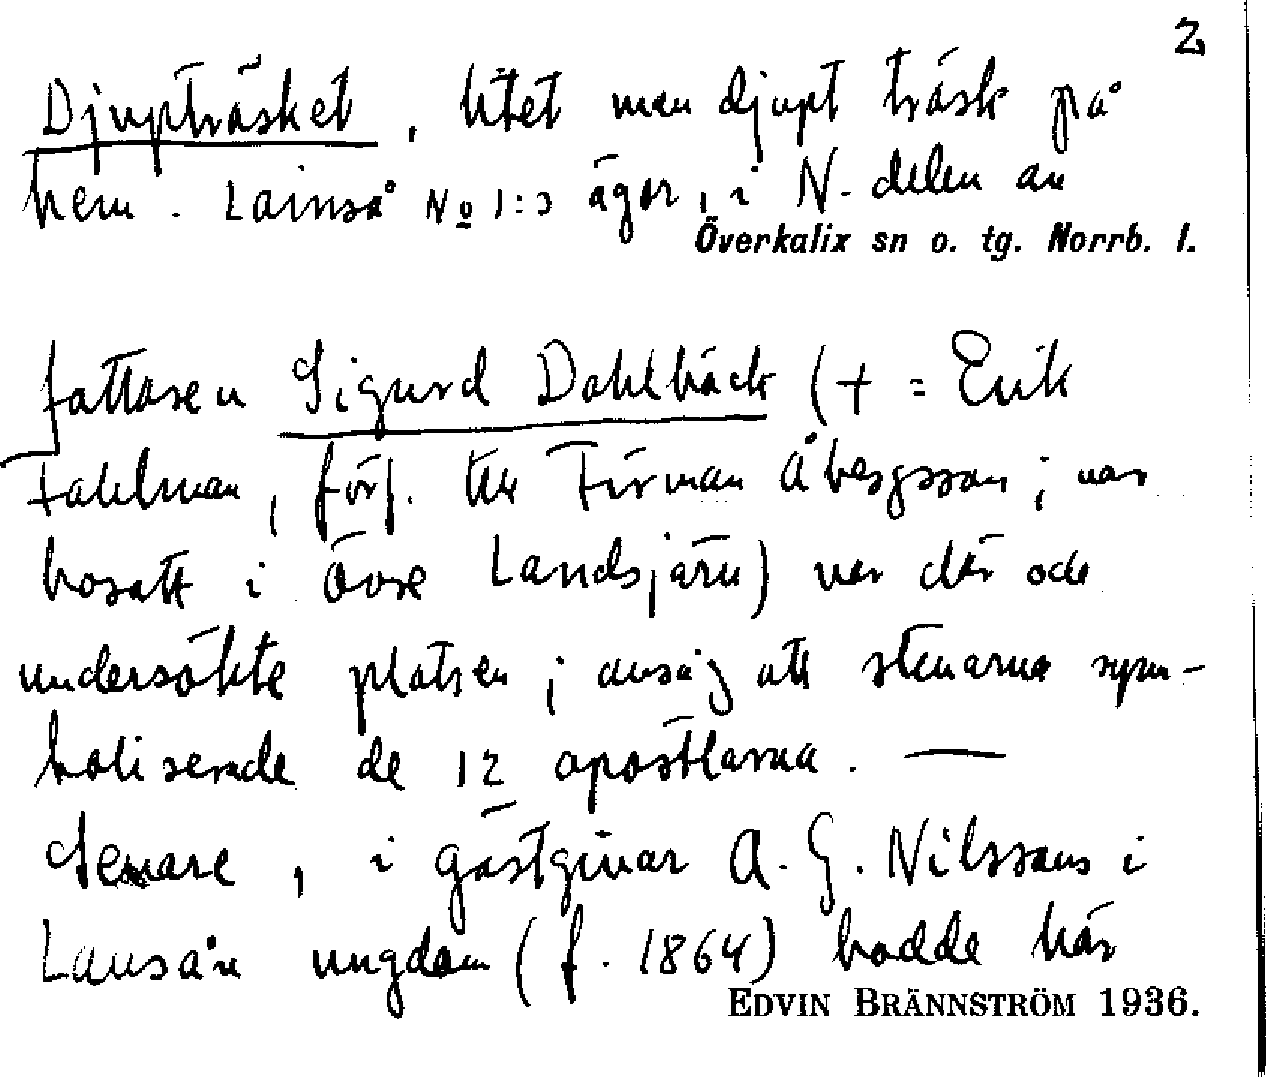 2
Djupträsket, litet men djupt träsk på
hem. Lainså No 1:3 ägor, i N. delen av
Överkalix sn o. tg. Norrb. l.
fattaren Sigurd Dahlbäck (+ = Erik
Fahlman, förf. till Firman Åbergsson; var
bosatt i Övre Landsjärv) var där och
undersökte platsen; ansåg att stenarna sym-
boliserade de 12 apostlarna. —
Senare, i gästgivar A. G. Nilssons i
Lansån ungdom (f. 1864) bodde här
EDVIN BRÄNNSTRÖM 1936.